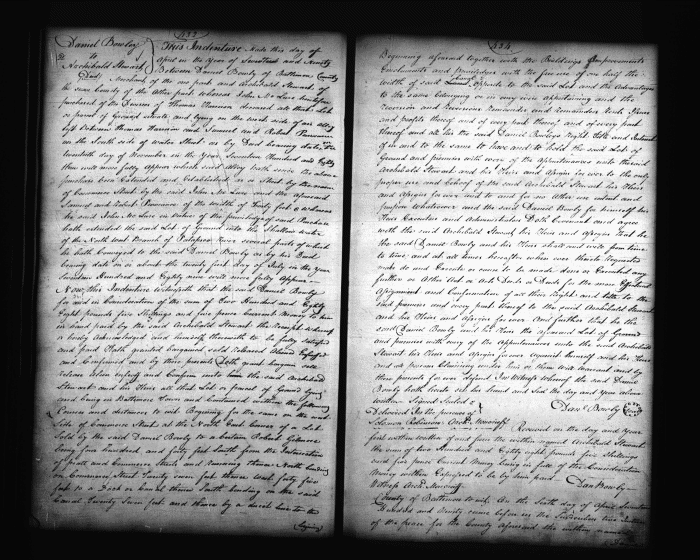 533
Daniel Bowly
to
Archibald Stewart
Deed
This Indenture Made this day of
April in the Year of Seventeen and Ninety
Between Daniel Bowly of Baltimore County
Merchant of the one part and Archibald Stewart of
the same County of the other part whereas John McLure heretofore
purchased of the Devisees of Thomas Harrison deceased all that Lot
or parcel of Ground situate and lying on the west side of an alley
left Between Thomas Harrison and Samuel and Robert Purviance
on the South side of water Street as by Deed bearing date the
twentieth day of November in the Year Seventeen Hundred and Eighty
three will more fully appear which said Alley hath since the above
purchase been Extended and Established as a Street by the name
of Commerce Street by the said John McLure and the aforesaid
Samuel and Robert Purviance of the width of Forty feet & whereas
the said John McLure in Virtue of the privilege of said Purchase
hath extended the said Lot of Ground into the Shallow water
of the North west Branch of Patapsco River several parts of which
he hath Conveyed to the said Daniel Bowly as by his Deed
bearing date on or about the twenty first day of July in the year
Seventeen Hundred and Eighty nine will more fully Appear
Now this Indenture Witnesseth that the said Daniel Bowly
for and in Consideration of the sum of Two Hundred and Eighty
Eight pounds five Shillings and five pence Current Money to him
in hand paid by the said Archibald Stewart the Receipt whereof
is hereby Acknowledged and himself therewith to be fully satisfied
and paid Hath granted bargained sold released
and Confirmed and by these presents Doth grant bargain sell
release alien enfeoff and Confirm unto him the said Archibald
Stewart and his Heirs all that Lot or parcel of Ground lying
and being in Baltimore Town and Contained within the following
Courses and distances to wit Beginning for the same on the west
side of Commerce Street at the North East Corner of a Lot
Sold by the said Daniel Bowly to a Certain Robert Gilmore
being four hundred and fifty feet South from the Intersection
of Pratt and Commerce Streets and Running thence North bounding
on Commerce Street Twenty seven feet thence west forty five
feet to a Dock or Canal thence South bounding on the said
Canal Twenty Seven feet and thence by a direct line to the
Beginning
534
Beginning aforesaid together with the Buildings Improvements
with the free use of one half the
width of said Canal Opposite to the said Lot and the Advantages
to the same belonging or in any wise appertaining and the
reversion and reversions Remainder and Remainders Rents Issues
and profits thereof and of every part thereof and of every part
thereof and all the said Daniel Bowlys Right title and Interest
of in and to the same to have and to hold the said Lot of
Ground and premises with every of the appurtenances unto the said
Archibald Stewart and his Heirs and Assigns for ever to the only
proper use and behoof of the said Archibald Stewart his Heirs
and Assigns for ever and to and for no other use intent and
purpose whatsoever and the said Daniel Bowly for himself his
Heirs Executors and Administrators Doth Covenant and agree
with the said Archibald Stewart his Heirs and Assigns that he
the said Daniel Bowly and his Heirs shall and will from time
to time and at all times hereafter when ever thereto Requested
make do and Execute or cause to be made done or Executed any
further or other Act or Acts Deeds or Deeds for the more
Assignment and Confirmation of all their Right and title to the
said premises and every part thereof to the said Archibald Stewart
and his Heirs and Assigns for ever And further that he the
said Daniel Bowly and his Heirs the aforesaid Lot of Ground
and premises with any of the Appurtenances unto the said Archibald
Stewart his Heirs and Assigns for ever against himself and his Heirs
and all persons claiming under him or them will warrant and by
these presents for ever Defend In Witness whereof the said Daniel
Bowly hath hereto set his hand and Seal the day and Year above
written Signed Sealed &
Delivered In the presence of
Danl Bowly (Seal)
Solomon Robinson Archd Moncrieff
Received on the day and Year
first within written of and from the within named Archibald Stewart
the sum of two Hundred and Eighty eight pounds five Shillings
and five pence Current Money being in full of the Consideration
Money within Expressed to be by him paid
Danl Bowly
Witness Archd Moncrieff
County of Baltimore to wit On the Sixth day of April Seventeen
Hundred and Ninety came before us the Subscribers two Justices
of the peace for the County aforesaid the within named